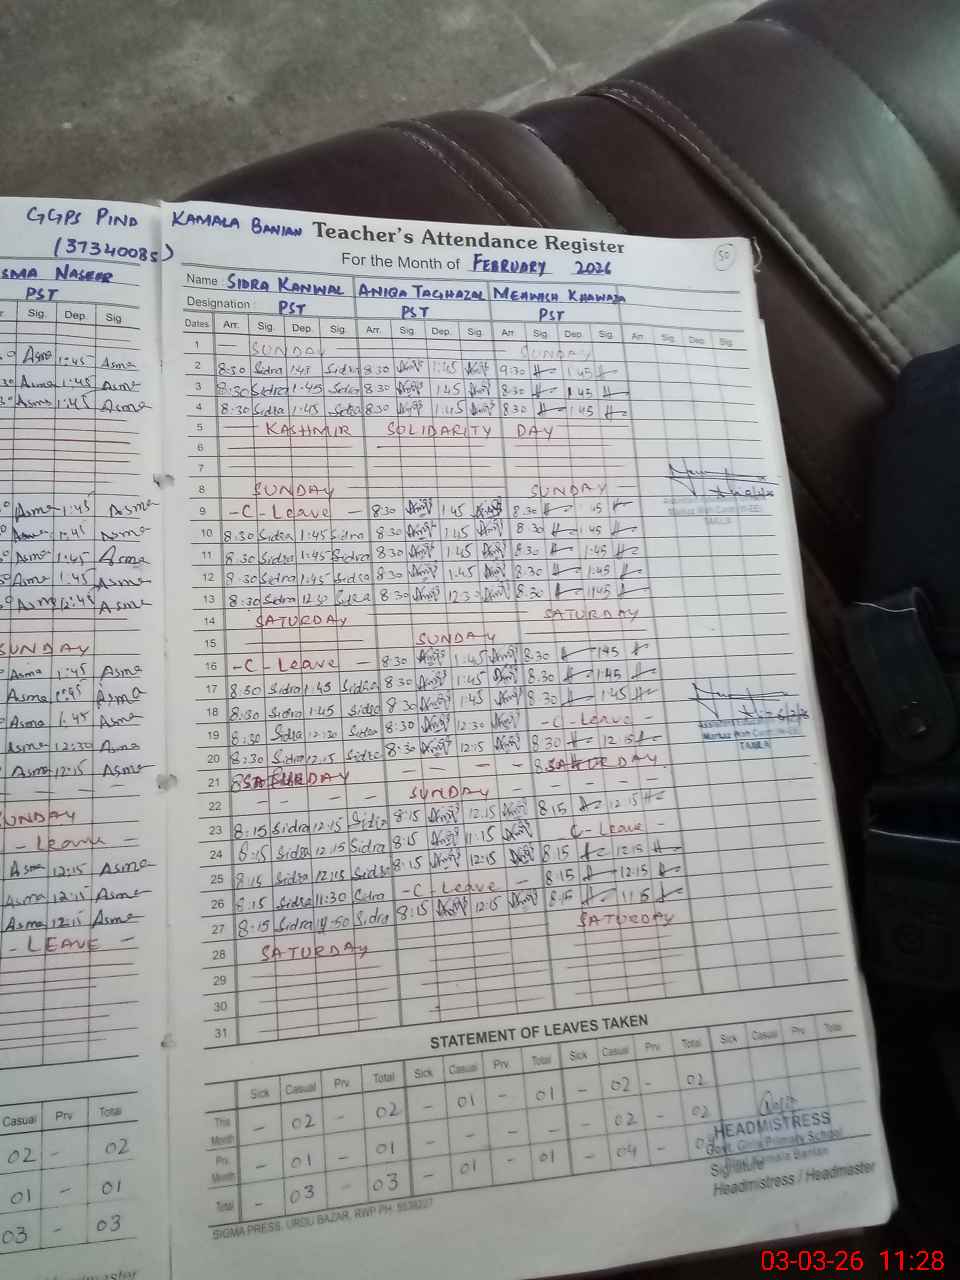 GGPS PIND KAMALA BANIAN
(37340085)
Teacher's Attendance Register
For the Month of FEBRUARY 2026
50
SMA NASEER
PST
Name: SIDRA KANWAL ANIQA TAGHAZAL MEHWISH KHAWAJA
Designation: PST PST PST
Sig. Dep. Sig.
Dates Arr. Sig. Dep. Sig. Arr. Sig. Dep. Sig. Arr. Sig. Dep. Sig. Arr. Sig. Dep. Sig.
1 — SUNDAY SUNDAY
Asma 1:45 Asma
2 8:30 Sidra 1:45 Sidra 8:30 1:45 9:30 1:45
Asma 1:45 Asma
3 8:30 Sidra 1:45 Sidra 8:30 1:45 8:30 1:45
Asma 1:45 Asma
4 8:30 Sidra 1:45 Sidra 8:30 1:45 8:30 1:45
5 KASHMIR SOLIDARITY DAY
6
7
8 SUNDAY SUNDAY
Asma 1:45 Asma
9 -C- Leave - 8:30 1:45 8:30 45
Asma 1:45 Asma
10 8:30 Sidra 1:45 Sidra 8:30 1:45 8:30 1:45
Asma 1:45 Asma
11 8:30 Sidra 1:45 Sidra 8:30 1:45 8:30 1:45
Asma 1:45 Asma
12 8:30 Sidra 1:45 Sidra 8:30 1:45 8:30 1:45
Asma 12:45 Asma
13 8:30 Sidra 12:30 Sidra 8:30 12:30 8:30 1:45
14 SATURDAY SATURDAY
SUNDAY
15 SUNDAY
Asma 1:45 Asma
16 -C- Leave — 8:30 1:45 8:30 1:45
Asma 1:45 Asma
17 8:30 Sidra 1:45 Sidra 8:30 1:45 8:30 1:45
Asma 1:45 Asma
18 8:30 Sidra 1:45 Sidra 8:30 1:45 8:30 1:45
Asma 12:30 Asma
19 8:30 Sidra 12:30 Sidra 8:30 12:30 -C- Leave -
Asma 12:15 Asma
20 8:30 Sidra 12:15 Sidra 8:30 12:15 8:30 12:15
21 SATURDAY — — — — SATURDAY
SUNDAY
22 - - - - SUNDAY - - - -
- Leave -
23 8:15 Sidra 12:15 Sidra 8:15 12:15 8:15 12:15
Asma 12:15 Asma
24 8:15 Sidra 12:15 Sidra 8:15 11:15 C- Leave -
Asma 12:15 Asma
25 8:15 Sidra 12:15 Sidra 8:15 12:15 8:15 12:15
Asma 12:15 Asma
26 8:15 Sidra 11:30 Sidra -C- Leave - 8:15 12:15
- LEAVE -
27 8:15 Sidra Sidra 8:15 12:15 8:15
28 SATURDAY SATURDAY
29
30
31
STATEMENT OF LEAVES TAKEN
Casual Prv Total
Sick Casual Prv. Total Sick Casual Prv. Total Sick Casual Prv. Total Sick Casual Prv Total
02 - 02
This Month - 02 - 02 - 01 - 01 - 02 - 02
01 - 01
Prv. Month - 01 - 01 - - - - 02 - 02
03 - 03
Total - 03 - 03 - 01 - 01 - 04 -
HEADMISTRESS
Govt. Girls Primary School
Kamala Banian
Signature
Headmistress / Headmaster
SIGMA PRESS, URDU BAZAR, RWP PH: 5538227
03-03-26 11:28